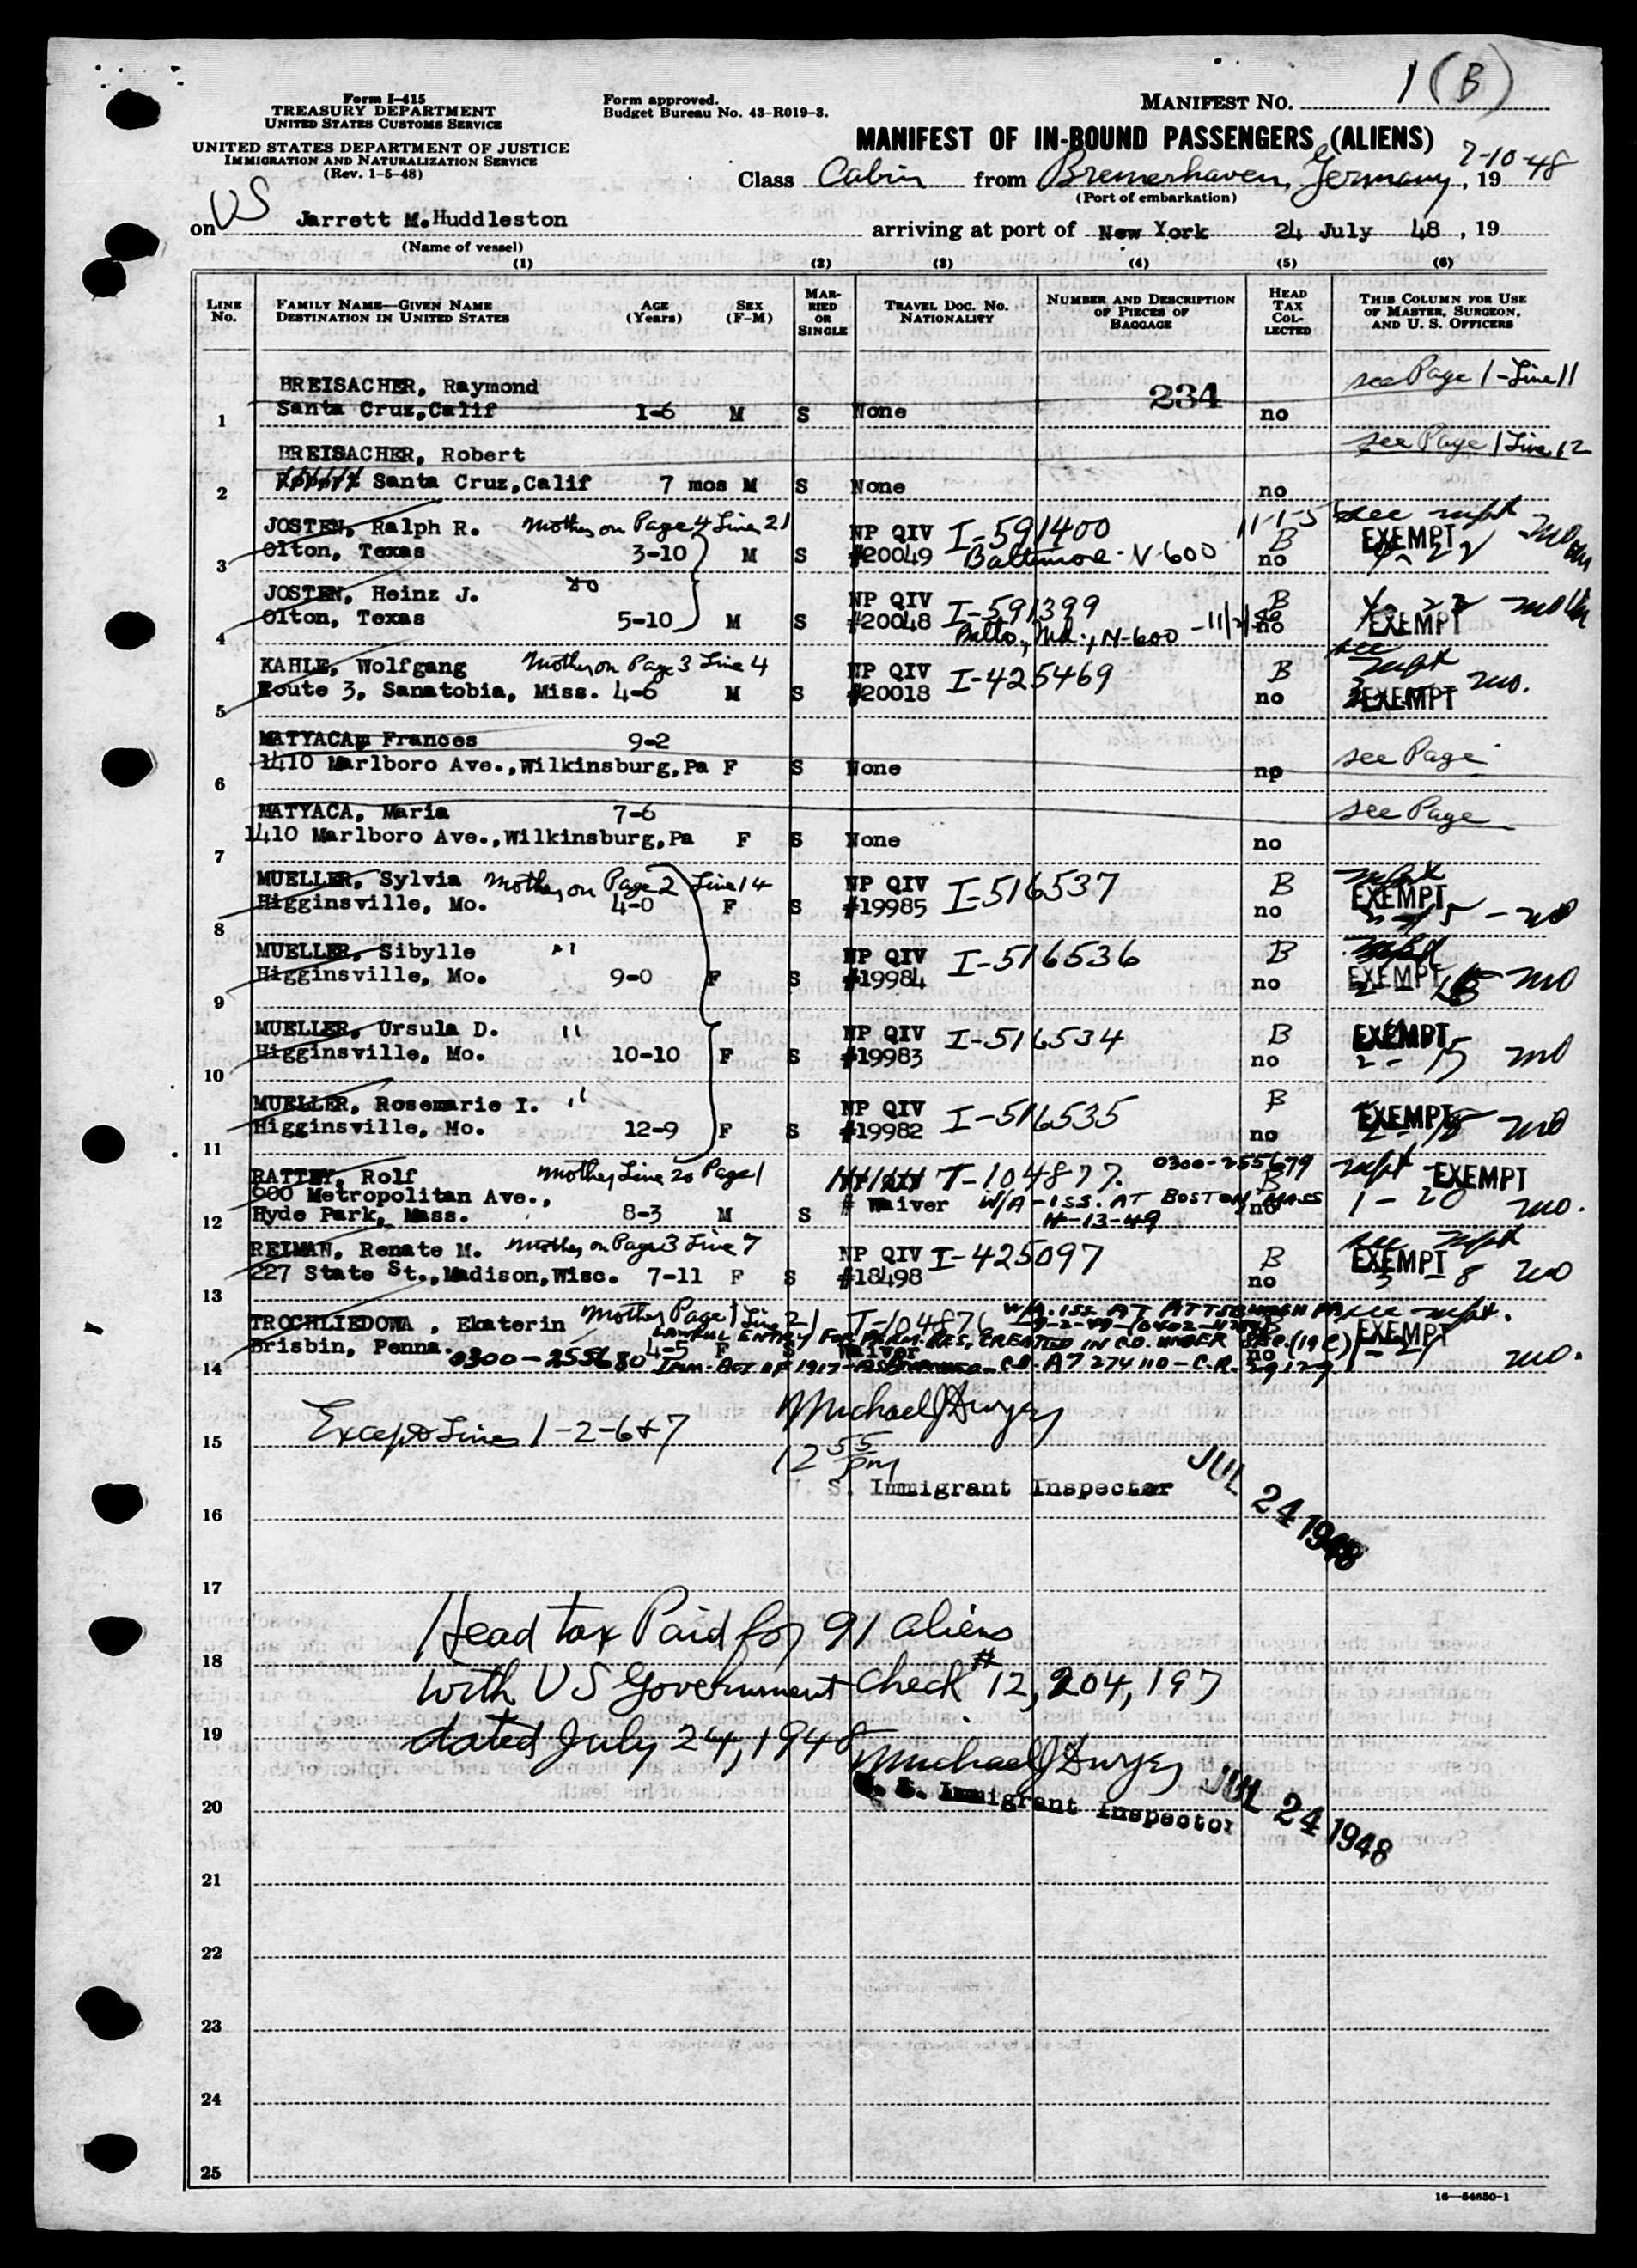 1 (B)
Form I-415
TREASURY DEPARTMENT
UNITED STATES CUSTOMS SERVICE
UNITED STATES DEPARTMENT OF JUSTICE
IMMIGRATION AND NATURALIZATION SERVICE
(Rev. 1-5-48)
Form approved.
Budget Bureau No. 43-R019-3.
MANIFEST NO.
MANIFEST OF IN-BOUND PASSENGERS (ALIENS)
7-10-48
Class Cabin from Bremerhaven, Germany, 19
(Port of embarkation)
on US Jarrett M. Huddleston arriving at port of New York 24 July 48, 19
(Name of vessel)
(1) (2) (3) (4) (5) (6)
LINE No. FAMILY NAME—GIVEN NAME DESTINATION IN UNITED STATES AGE (Years) SEX (F-M) MARRIED OR SINGLE TRAVEL DOC. NO. NATIONALITY NUMBER AND DESCRIPTION OF PIECES OF BAGGAGE HEAD TAX COLLECTED THIS COLUMN FOR USE OF MASTER, SURGEON, AND U. S. OFFICERS
BREISACHER, Raymond 234 see Page 1-Line 11
1 Santa Cruz,Calif 1-6 M S None no
BREISACHER, Robert see Page 1 Line 12
2 Santa Cruz,Calif 7 mos M S None no
JOSTEN, Ralph R. Mother on Page 4 Line 21 NP QIV I-591400 EXEMPT
3 Olton, Texas 3-10 M S #20049 Baltimore N-600 B no
JOSTEN, Heinz J. do NP QIV I-591399 B
4 Olton, Texas 5-10 M S #20048 Balto, Md., N-600 no EXEMPT
KAHLE, Wolfgang Mother on Page 3 Line 4 NP QIV I-425469 B
5 Route 3, Sanatobia, Miss. 4-6 M S #20018 no EXEMPT mo.
MATYACA, Frances 9-2
6 1410 Marlboro Ave.,Wilkinsburg,Pa F S None no see Page
MATYACA, Maria 7-6 see Page
7 1410 Marlboro Ave.,Wilkinsburg,Pa F S None no
MUELLER, Sylvia Mother on Page 2 Line 14 NP QIV I-516537 B EXEMPT
8 Higginsville, Mo. 4-0 F S #19985 no
MUELLER, Sibylle " NP QIV I-516536 B
9 Higginsville, Mo. 9-0 F S #19984 no EXEMPT mo
MUELLER, Ursula D. " NP QIV I-516534 B EXEMPT
10 Higginsville, Mo. 10-10 F S #19983 no 2-15 mo
MUELLER, Rosemarie I. " NP QIV I-516535 B EXEMPT
11 Higginsville, Mo. 12-9 F S #19982 no mo
RATTEY, Rolf Mother Line 20 Page 1 T-104877. 0300-255679 EXEMPT
900 Metropolitan Ave., # Waiver W/A-ISS. AT BOSTON, MASS no 1-20 mo.
12 Hyde Park, Mass. 8-3 M S 4-13-49
REIMAN, Renate M. Mother on Page 3 Line 7 NP QIV I-425097 B EXEMPT
13 227 State St.,Madison,Wisc. 7-11 F S #18498 no 3-8 mo
TROCHLIEDOWA, Ekaterin Mother Page 1 Line 21 T-104876 W/A. ISS. AT PITTSBURGH PA
LAWFUL ENTRY FOR PERM. RES. CREATED IN C.O. UNDER SEC. (19 C) EXEMPT
Brisbin, Penna. 4-5 F S Waiver no 1-21 mo.
14 0300-255680 IMM. ACT OF 1917- C.O. A7 274 110 - C.R.
Michael J Dwyer
15 Except Lines 1-2-6+7
12 55 pm
U. S. Immigrant Inspector JUL 24 1948
16
17
Head tax Paid for 91 aliens
18
with US Government check # 12,204,197
19
dated July 24, 1948
Michael J Dwyer
U. S. Immigrant Inspector JUL 24 1948
20
21
22
23
24
25
16—54650-1